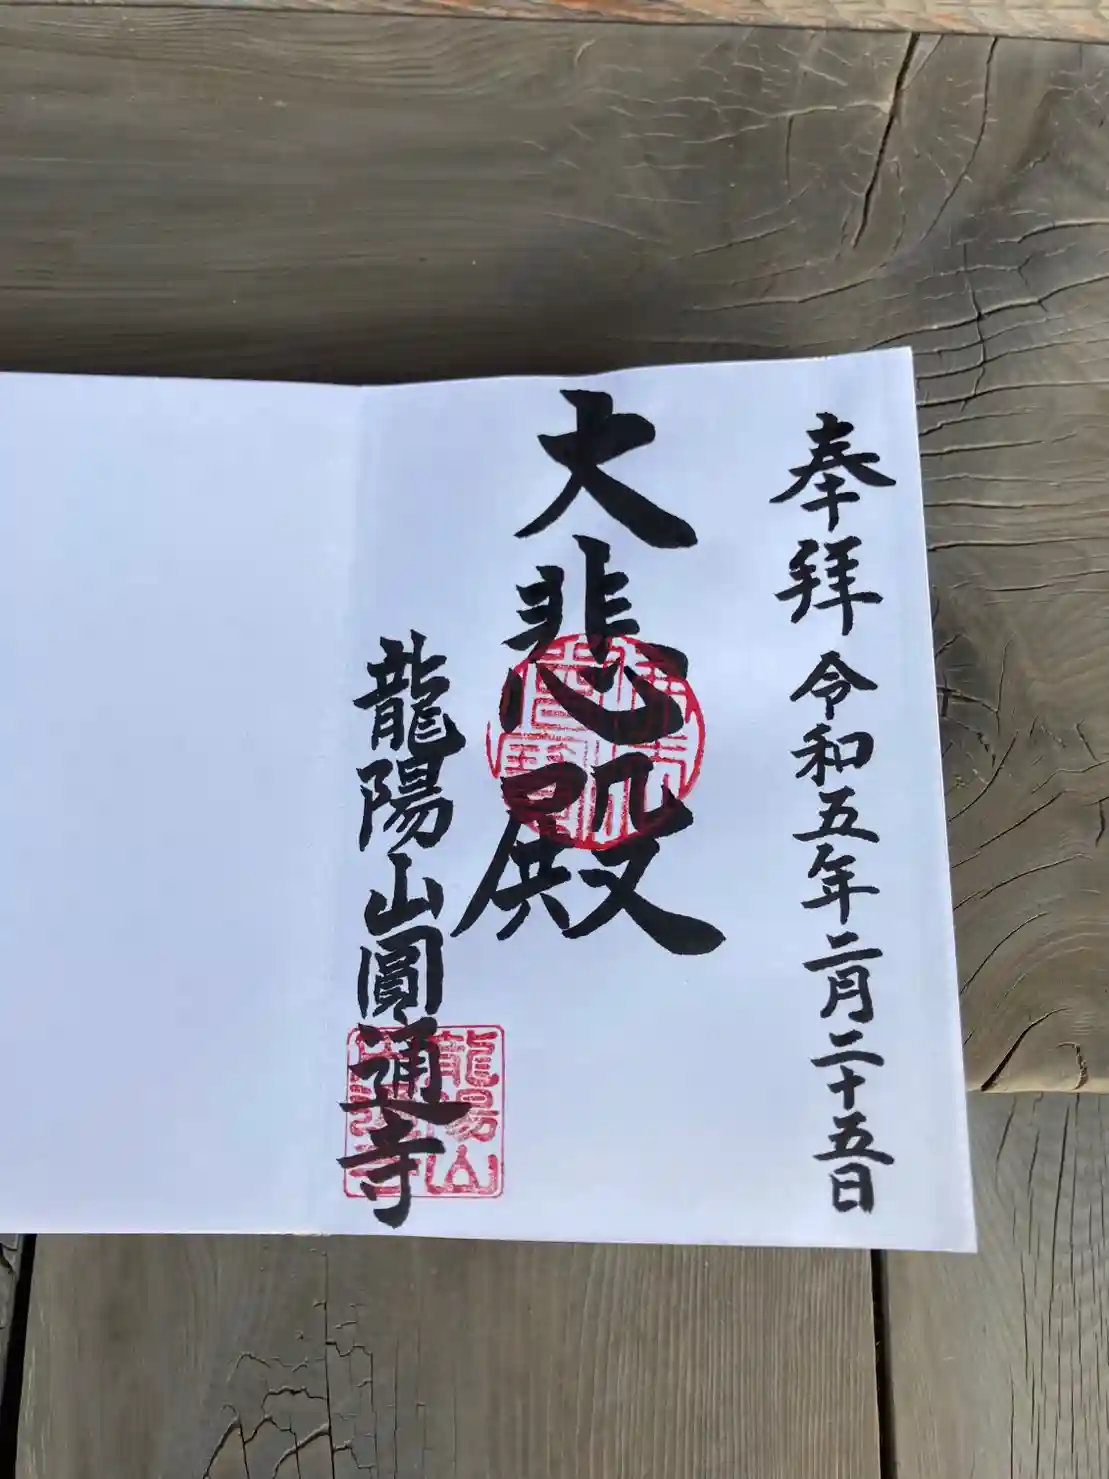 奉拜 令和五年二月二十五日
大悲殿
龍陽山圓通寺
龍陽山